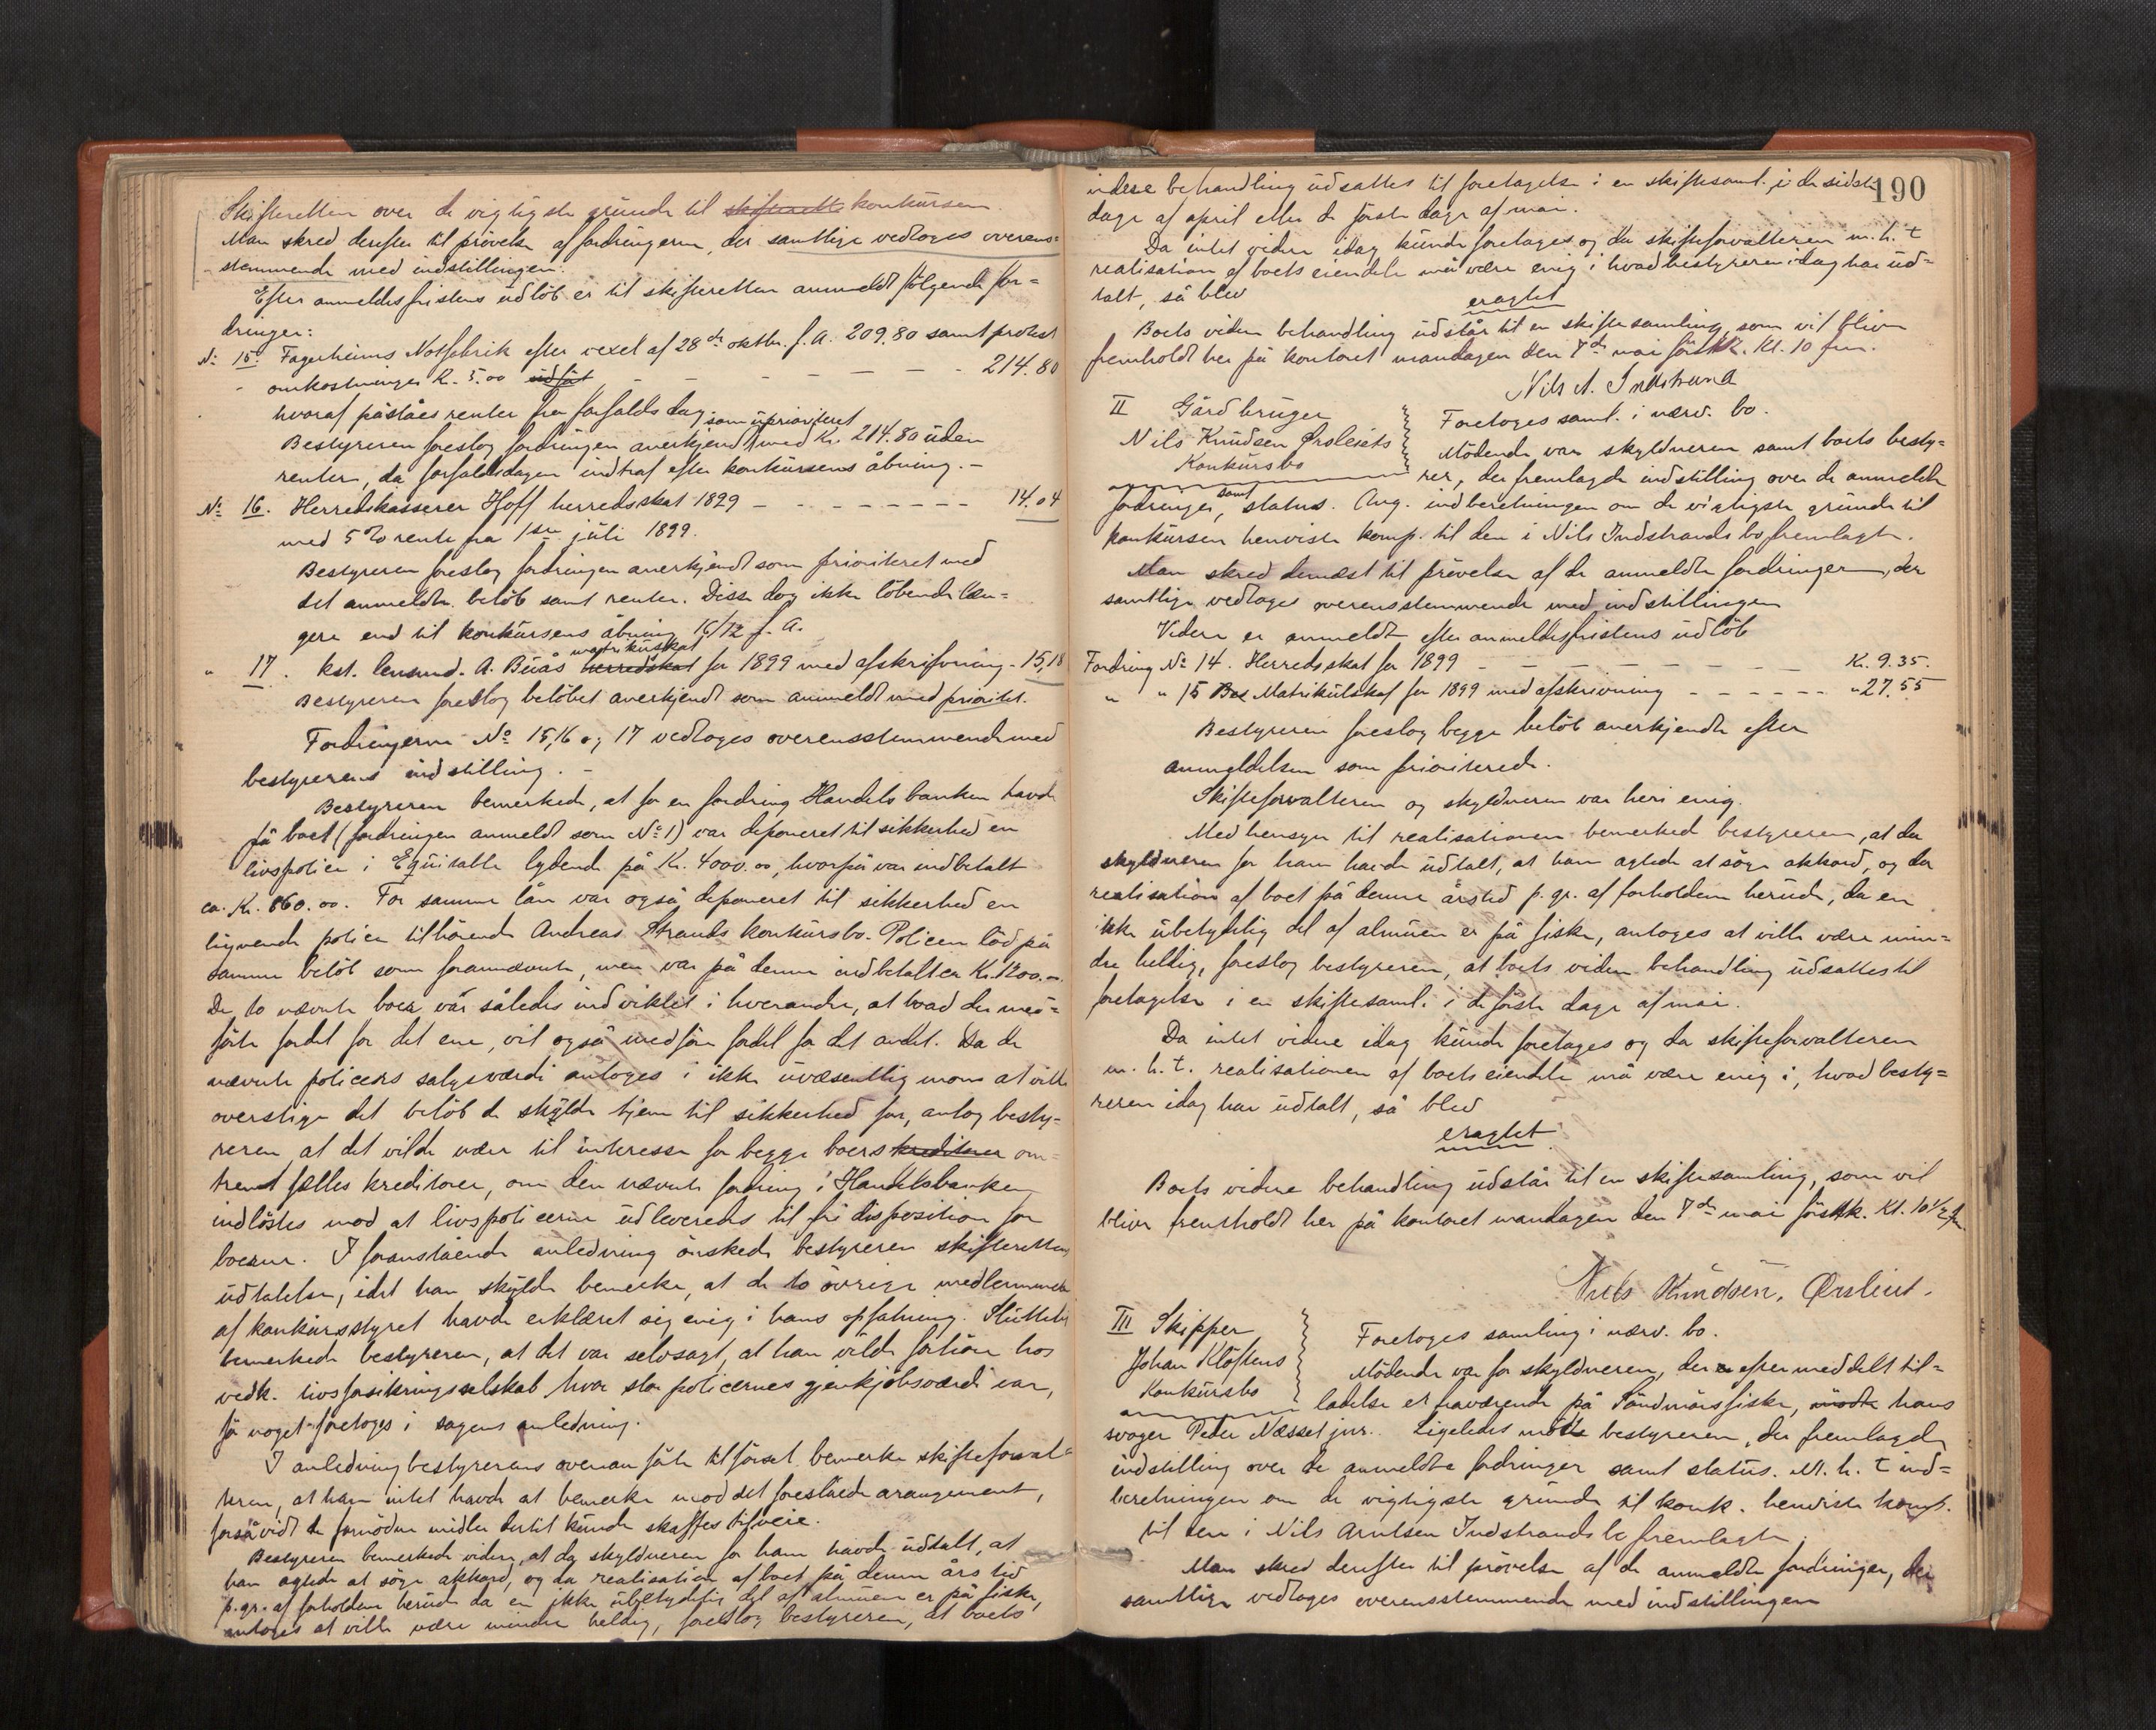 Skifteretten over de vigtigste grunde til skifterette konkursen.
Man skred derefter til prövelse af fordringerne, der samtlige vedtoges overens=
stemmende med indstillingen.
Efter anmeldesfristens udlöb er til skifteretten anmeldt fölgende for=
dringer:
No 15. Fagerheims Notfabrik efter vexel af 28de oktbr. f. A. 209.80 samt protest
omkostninger K. 5.00 - - - - - - 214.80
hvoraf påståes renter fra forfaldsdag
som upriorite̅t
Bestyreren foreslog fordringen anerkjendt med Kr. 214.80 uden
renter, da forfaldsdagen indtraf efter konkursens åbning. -
No 16. Herredskasserer Hoff herredsskat 1899 - - - - - - - - 14.04
med 5 % rente fra 1ste juli 1899.
Bestyreren foreslog fordringen anerkjendt som prioriteret med
det anmeldte belöb samt renter. Disse dog ikke löbende læn=
gere end til konkursens åbning 16/12 f. A.
matrikulskat
" 17. kst. lensmd. A. Buås herredsskat for 1899 med afskrifvning - 15,18
Bestyreren foreslog belöbet anerkjendt som anmeldt med prioritet.
Fordringerne No 15, 16 og 17 vedtoges overensstemmende med
bestyrerens indstilling. -
Bestyreren bemerkede, at for en fordring Handelsbanken havde
på boet (fordringen anmeldt som No 1) var deponeret til sikkerhed en
livspolice i Equitable lydende på Kr. 4000.00, hvorpå var indbetalt
ca. Kr. 860.00. For samme lån var også deponeret til sikkerhed en
lignende police tilhörende Andreas Strands konkursbo. Policen löd på
samme belöb som forannævnte, men var på denne indbetalt ca Kr. 1200.-
De to nævnte boer var således indviklet i hverandre, at hvad der med=
förte fordel for det ene, vil også medföre fordel for det andet. Da de
nævnte policers salgsværdi antoges i ikke uvæsentlig mon at ville
overstige det belöb de skulde tjene til sikkerhed for, antog besty=
reren, at det vilde være til interesse for begge boers kreditorer om=
trent fælles kreditorer, om den nævnte fordring i Handelsbanken
indlöstes mod at livspolicerne udleveredes til fri disposition for
boerne. I foranstående anledning önskede bestyreren skifterettens
udtalelse, idet han skulde bemerke, at de to övrige medlemmer
af konkursstyret havde erklæret sig enig i hans opfatning. Sluttelig
bemerkede bestyreren, at det var selvsagt, at han vilde forhöre hos
vedk. livsforsikringsselskab hvor stor policernes gjenkjöbsværdi var,
för noget foretoges i sagens anledning.
I anledning bestyrerens ovenanförte tilförsel bemerke skifteforval=
teren, at han intet havde at bemerke mod det foreslåede arangement,
forsåvidt de fornödne midler dertil kunde skaffes tilveie.
Bestyreren bemerkede videre, at da skyldneren for ham havde udtalt, at
han agtede at söge akkord, og da realisation af boet på denne års tid
p. gr. af forholdene herude da en ikke ubetydelig del af almuen er på fiske,
antoges at ville være mindre heldig, foreslog bestyreren, at boets
190
videre behandling udsattes til foretagelse i en skiftesaml. i de sidste
dage af april eller de förste dage af mai.
Da intet videre idag kunde foretages og da skifteforvalteren m. h. t
realisation af boets eiendele må være enig i hvad bestyreren idag har ud=
talt, så blev
eragtet
Boets videre behandling udstår til en skiftesamling, som vil blive
fremholdt her på kontoret mandagen den 7de mai förstk. Kl. 10 fm.
Nils A. Indstrand
II Gårdbruger
Nils Knudsen Ørsleists
Konkursbo
Foretoges saml. i nærv. bo.
Mödende var skyldneren samt boets besty=
rer, der fremlagde indstilling over de anmeldte
fordringer, samt status. Ang. indberetningen om de vigtigste grunde til
konkursen henviste komp. til den i Nils Indstrands bo fremlagte.
Man skred dernæst til prövelse af de anmeldte fordringer, der
samtlige vedtoges overensstemmende med indstillingen
Videre er anmeldt efter anmeldesfristens udlöb
Fordring No 14. Herredsskat for 1899 - - - - - - - - Kr. 9.35.
" " 15 Bes Matrikulskat for 1899 med afskrivning - - - - - - " 27.55
Bestyreren foreslog begge belöb anerkjendte efter
anmeldelsen som prioriterede.
Skifteforvalteren og skyldneren var heri enig.
Med hensyn til realisationen bemerked bestyreren, at da
skyldneren for ham havde udtalt, at han agtede at söge akkord, og da
realisation af boet på denne årstid p. gr. af forholdene herude, da en
ikke ubetydelig del af almuen er på fiske, antoges at ville være min=
dre heldig, foreslog bestyreren, at boets videre behandling udsattes til
foretagelse i en skiftesaml. i de förste dage af mai.
Da intet videre idag kunde foretages og da skifteforvalteren
m. h. t. realisationen af boets eiendele må være enig i, hvad besty=
reren idag har udtalt, så blev
eragtet
Boets videre behandling udstår til en skiftesamling, som vil
blive fremholdt her på kontoret mandagen den 7de mai förstk. Kl. 10½ fm
Nils Knudsen, Ørsleist.
III Skipper
Johan Klöftens
Konkursbo
Foretoges samling i nærv. bo.
Mödende var for skyldneren, der efter meddelt til=
ladelse er fraværende på Söndmörsfiske, mödte hans
svoger Peder Næsset jnr. Ligeledes mötte bestyreren, der fremlagde
indstilling over de anmeldte fordringer samt status. M. h. t ind=
beretningen om de vigtigste grunde til konk. henviste komp.
til den i Nils Arntsen Indstrands bo fremlagte.
Man skred derefter til prövelse af de anmeldte fordringer, der
samtlige vedtoges overensstemmende med indstillingen